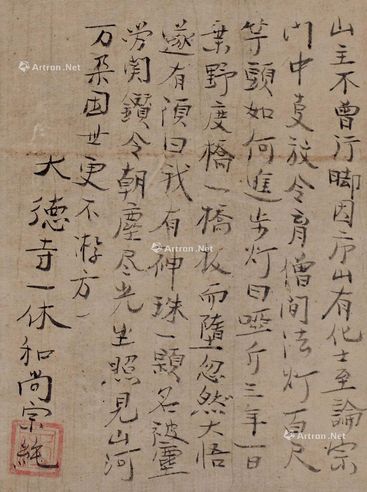 山主不曾行脚因庐山有化士至論宗
门中叓放令育僧问法灯百尺
竿頭如何進步灯曰啞斤三年一日
乗野度橋一橋板而墮忽然大悟
遂有頌曰我有神珠一顆名被塵
労関鑽令朝塵尽光生照見山河
万朶因世更不游方
大德寺一休和尚宗純
Artron.Net